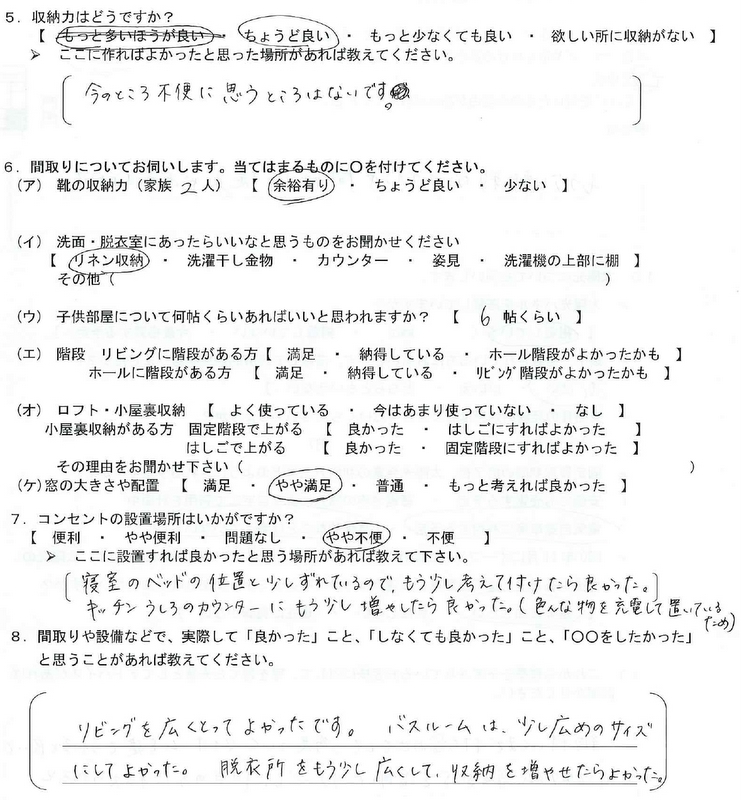 5．収納力はどうですか？
【 もっと多いほうが良い ・ ちょうど良い ・ もっと少なくても良い ・ 欲しい所に収納がない 】
➢ ここに作ればよかったと思った場所があれば教えてください。
今のところ不便に思うところはないです。
6．間取りについてお伺いします。当てはまるものに〇を付けてください。
（ア） 靴の収納力（家族 2 人） 【 余裕有り ・ ちょうど良い ・ 少ない 】
（イ） 洗面・脱衣室にあったらいいなと思うものをお聞かせください
【 リネン収納 ・ 洗濯干し金物 ・ カウンター ・ 姿見 ・ 洗濯機の上部に棚 】
その他（ ）
（ウ） 子供部屋について何帖くらいあればいいと思われますか？ 【 6 帖くらい 】
（エ） 階段 リビングに階段がある方【 満足 ・ 納得している ・ ホール階段がよかったかも 】
ホールに階段がある方 【 満足 ・ 納得している ・ ﾘﾋﾞﾝｸﾞ階段がよかったかも 】
（オ） ロフト・小屋裏収納 【 よく使っている ・ 今はあまり使っていない ・ なし 】
小屋裏収納がある方 固定階段で上がる 【 良かった ・ はしごにすればよかった 】
はしごで上がる 【 良かった ・ 固定階段にすればよかった 】
その理由をお聞かせ下さい（ ）
（ケ）窓の大きさや配置 【 満足 ・ やや満足 ・ 普通 ・ もっと考えれば良かった 】
7．コンセントの設置場所はいかがですか？
【 便利 ・ やや便利 ・ 問題なし ・ やや不便 ・ 不便 】
➢ ここに設置すれば良かったと思う場所があれば教えて下さい。
寝室のベッドの位置と少しずれているので、もう少し考えて付けたら良かった。
キッチンうしろのカウンターにもう少し増やしたら良かった。（色んな物を充電して置いている
ため）
8．間取りや設備などで、実際して「良かった」こと、「しなくても良かった」こと、「〇〇をしたかった」
と思うことがあれば教えてください。
リビングを広くとってよかったです。 バスルームは、少し広めのサイズ
にしてよかった。 脱衣所をもう少し広くして、収納を増やせたらよかった。